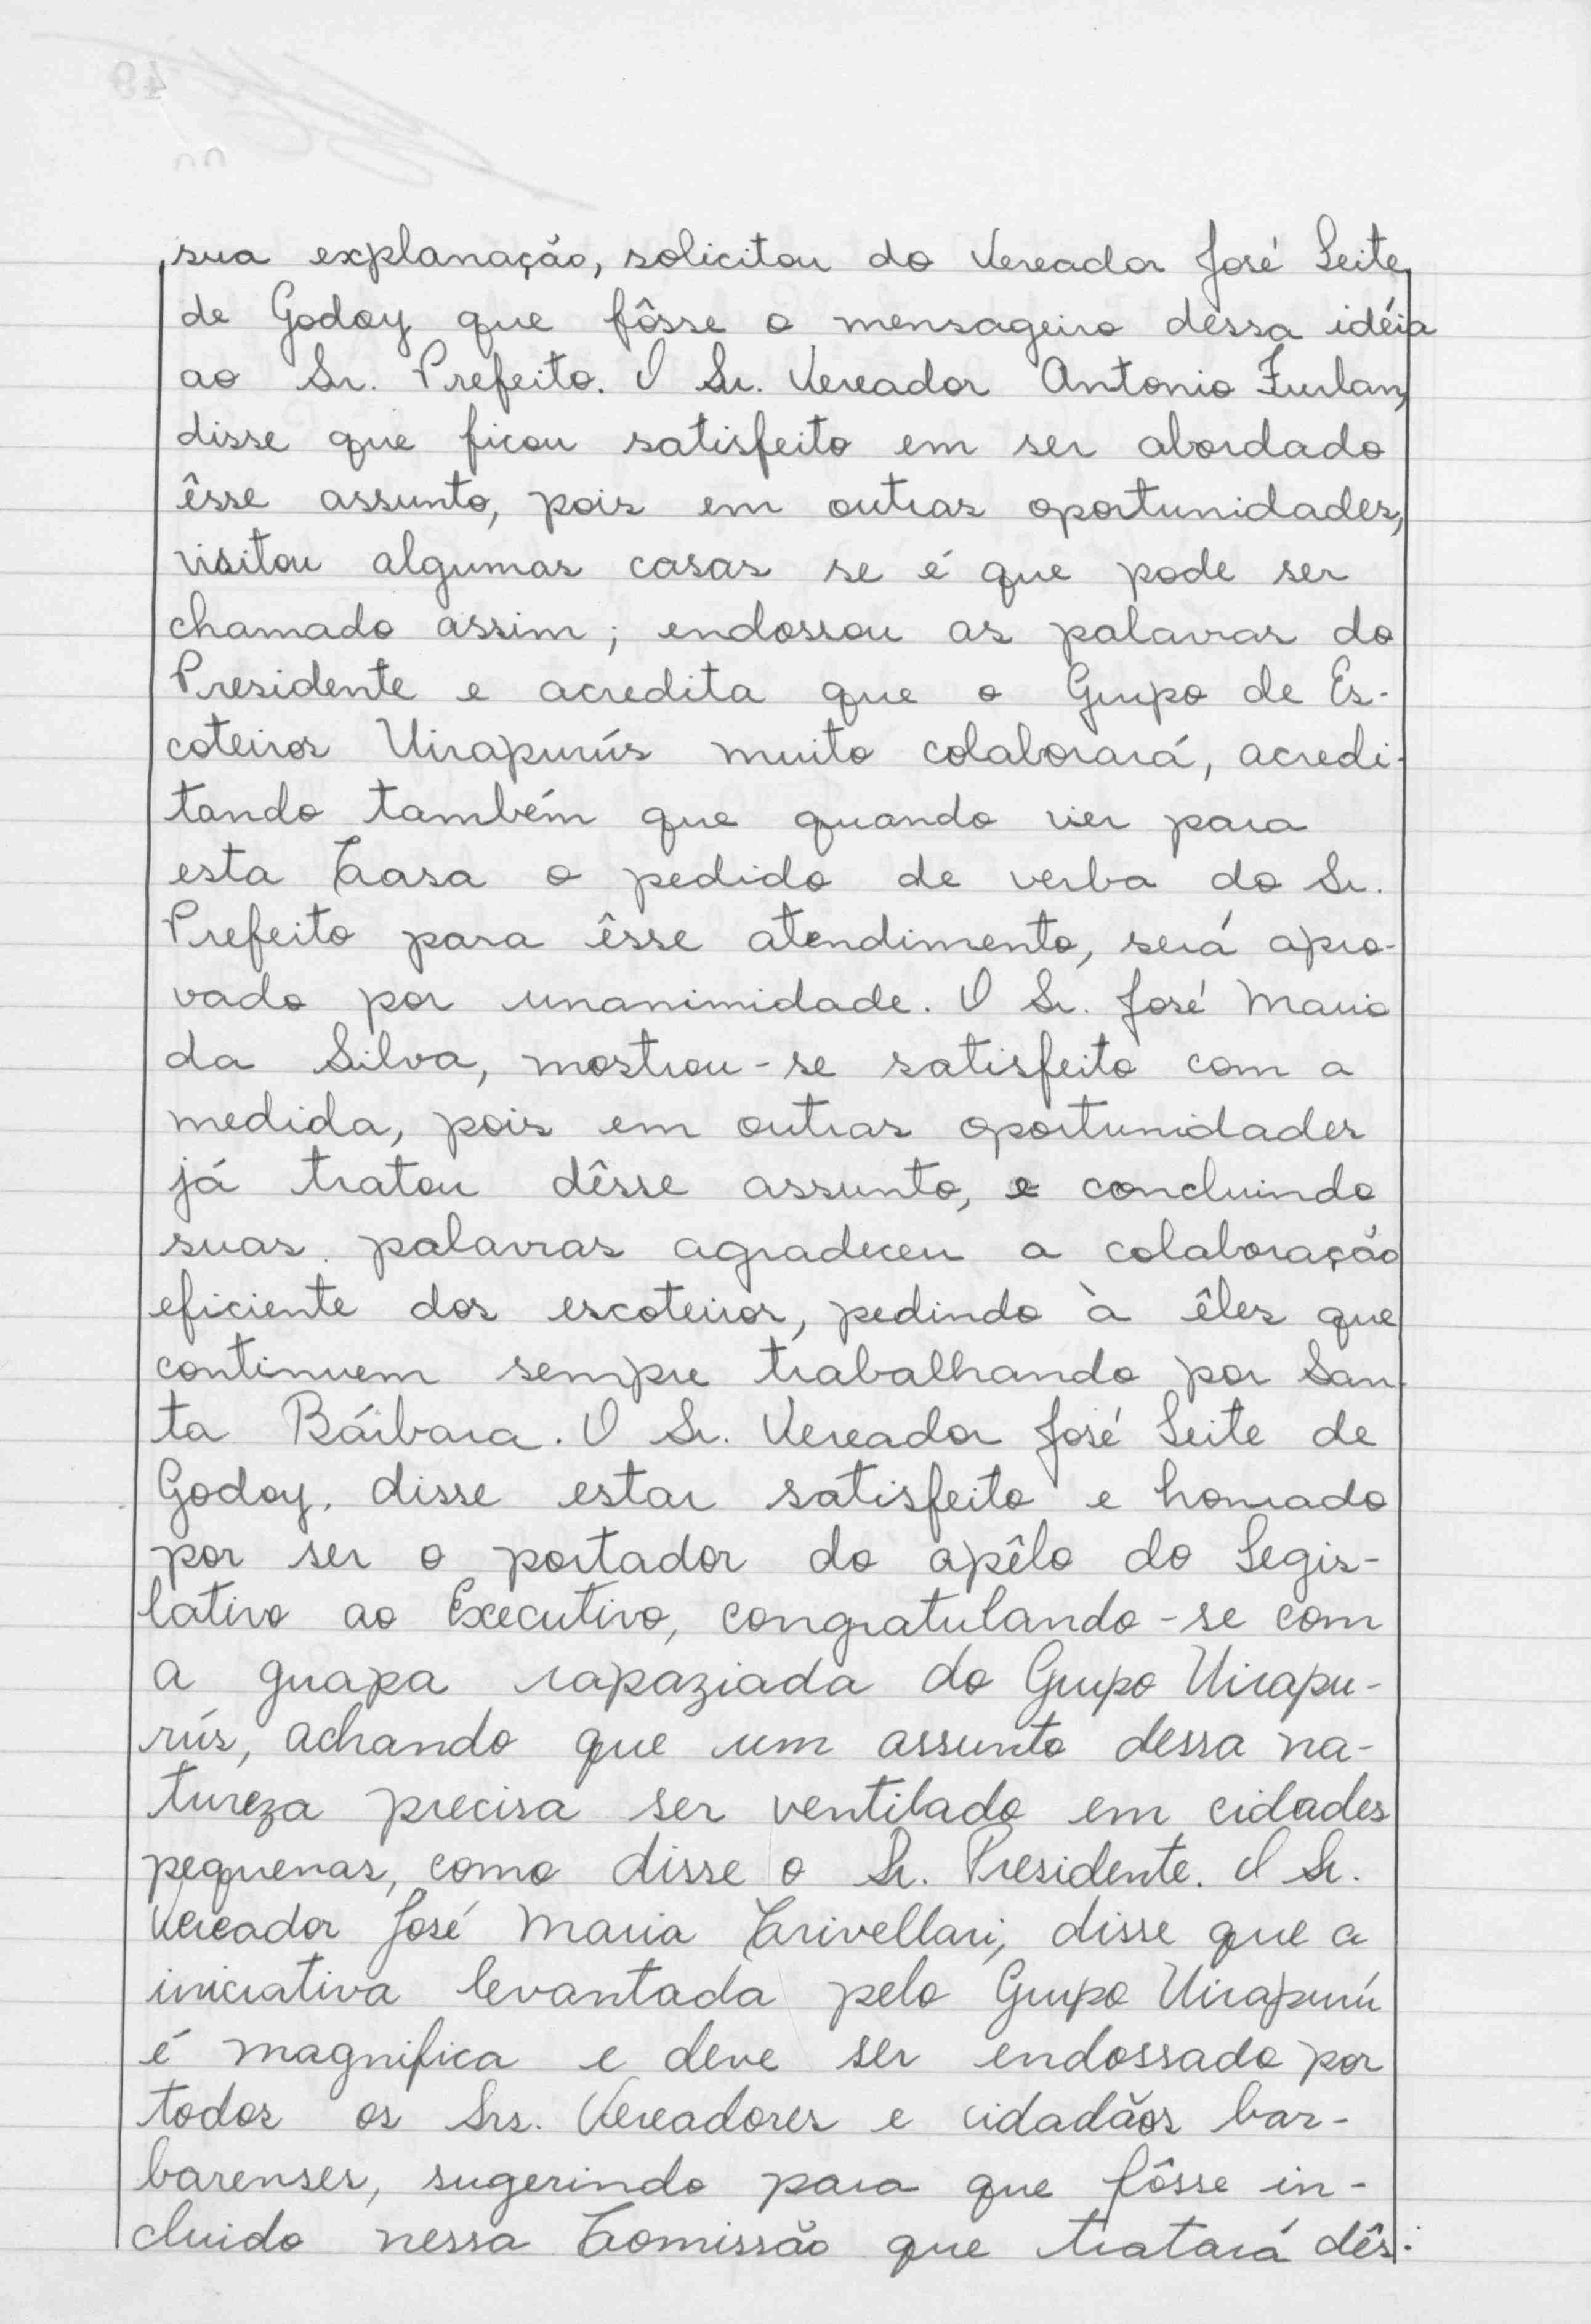 sua explanação, solicitou do Vereador José Leite
de Godoy que fôsse o mensageiro dessa idéia
ao Sr. Prefeito. O Sr. Vereador Antonio Furlan,
disse que ficou satisfeito em ser abordado
êsse assunto, pois em outras oportunidades,
visitou algumas casas se é que pode ser
chamado assim; endossou as palavras do
Presidente e acredita que o Grupo de Es-
coteiros Uirapurús muito colaborará, acredi-
tando também que quando vier para
esta Casa o pedido de verba do Sr.
Prefeito para êsse atendimento, será apro-
vado por unanimidade. O Sr. José Maria
da Silva, mostrou-se satisfeito com a
medida, pois em outras oportunidades
já tratou dêsse assunto, e concluindo
suas palavras agradeceu a colaboração
eficiente dos escoteiros, pedindo à êles que
continuem sempre trabalhando por San-
ta Bárbara. O Sr. Vereador José Leite de
Godoy, disse estar satisfeito e honrado
por ser o portador do apêlo do Legis-
lativo ao Executivo, congratulando-se com
a guapa rapaziada do Grupo Uirapu-
rús, achando que um assunto dessa na-
tureza precisa ser ventilado em cidades
pequenas, como disse o Sr. Presidente. O Sr.
Vereador José Maria Crivellari, disse que a
iniciativa levantada pelo Grupo Uirapurú
é magnifica e deve ser endossado por
todos os Srs. Vereadores e cidadãos bar-
barenses, sugerindo para que fôsse in-
cluido nessa Comissão que tratará dês-